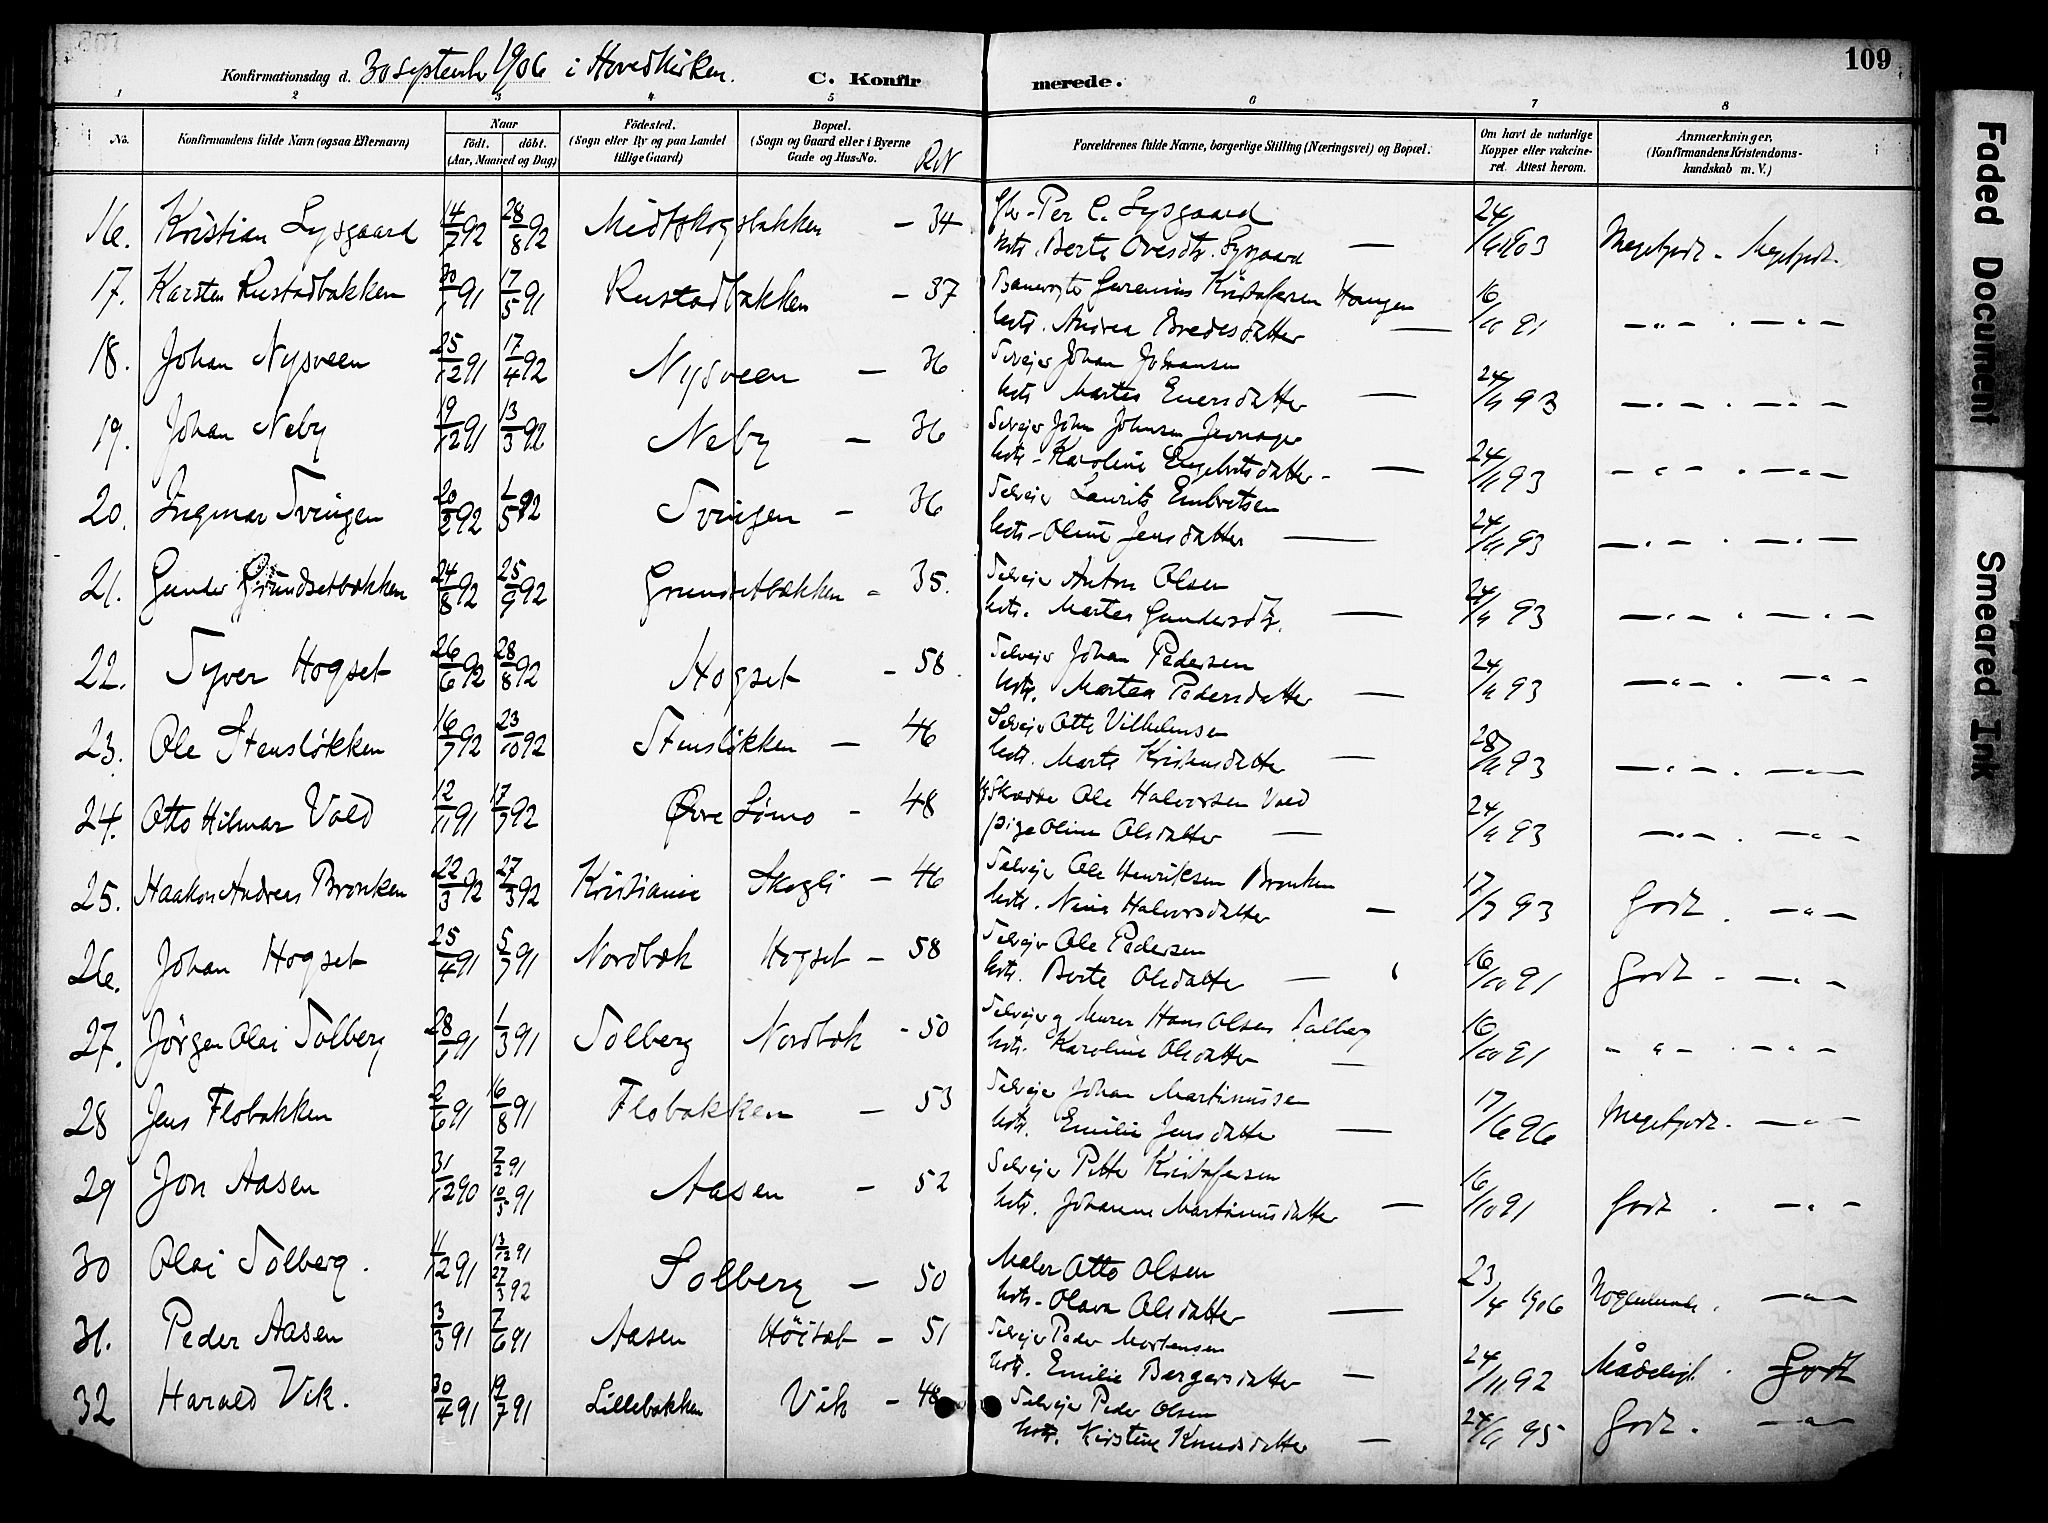 109
Konfirmationsdag d. 30 septembr 1906 i Hovedkirken. C. Konfirmerede.
1 2 3 4 5 6 7 8
No. Konfirmandens fulde Navn (ogsaa Efternavn) Naar født. døbt. (Aar, Maaned og Dag) Fødested. (Sogn eller By og paa Landet tillige Gaard) Bopæl. (Sogn og Gaard eller i Byerne Gade og Hus-No. Forældrenes fulde Navne, borgerlige Stilling (Næringsvei) og Bopæl. Om havt de naturlige Kopper eller vakcineret. Attest herom. Anmærkninger, (Konfirmandens Kristendomskundskab m. V.)
16. Kristian Lysgaard 14/7 92 28/8 92 Midtskogsbakken – 34 Per C. Lysgaard 24/ 1903 Megetgodt – Megetgodt
hstr. Berte Ovesdtr. Lysgaard —
17. Karsten Rustadbakken 30/1 91 17/5 91 Rustadbakken – 37 Kristofersen Haugen 16/10 91 – " – . – " –
hstr. Andrea Bredesdatter —
18. Johan Nysveen 25/12 91 17/4 92 Nysveen – 36 Selvejer Johan Johansen 24/ 93 – " – . – " –
hstr Martea Evensdatter —
19. Johan Neby 19/12 91 13/3 92 Neby – 36 Selvejer John Johnsen 24/ 93 – " – . – " –
hstr – Karoline Engebretsdatter – —
20. Ingmar Svingen 20/2 92 1/5 92 Svingen – 36 Selvejer Laurits Embretsen 24/ 93 – " – . – " –
hstr – Oline Jensdatter —
21. Gunder Grundsetbækken 24/8 92 25/9 92 Grundsetbækken – 35. Selvejer Anton Olsen 24/ 93 – " – . – " –
hstr. Martea Gundersdtr. —
22. Syver Hogset 26/6 92 28/8 92 Hogset – 58 Selvejer Johan Pedersen 24/ 93 – " – . – " –
hstr. Martea Pedersdatter —
23. Ole Stensløkken 16/7 92 23/10 92 Stensløkken – 46 Selvejer Otto Vilhelmsen 28/ 93 – " – . – " –
hstr. Marte Kristensdatter —
24. Otto Hilmar Vold 12/11 91 17/7 92 Øvre Lømo – 48 Ole Halvorsen Vold 24/ 93 – " – . – " –
pige Oline Olsdatter —
25. Haakon Andreas Bronken 22/3 92 27/3 92 Kristiania Skogli – 46 Selvejer Ole Henriksen Bronken 17/ 93 Godt . – " –
hstr. Nina Halvorsdatter —
26. Johan Hogset 25/4 91 5/7 91 Nordbæk Hogset – 58 Selvejer Ole Pedersen 16/10 91 Godt – – " –
hstr. Berte Olsdatter —
27. Jørgen Olai Solberg 28/1 91 1/3 91 Solberg Nordbæk – 50 Selvejer og Murer Hans Olsen Solberg 16/10 91 – " – . – " –
hstr. Karoline Olsdatter —
28 Jens Flobakken 2/6 91 16/8 91 Flobakken – 53 Selvejer Johan Martinussen 17/6 96 Megetgodt. – " –
hstr. Emilie Jensdatter —
29 Jon Aasen 31/12 90 7/2 91 10/5 91 Aasen – 52 Selvejer Petter Kristofersen 16/10 91 Godt . – " –
hstr. Johanne Martinusdatter —
30 Olai Solberg. 11/12 91 13/12 91 27/3 92 Solberg – 50 Maler Otto Olsen 23/4 1906 Nogenlunde. – " –
hstr – Olava Olsdatter —
31. Peder Aasen 3/3 91 7/6 91 Aasen Höitæt – 51 Selvejer Peder Mortensen 24/11 92 Mådeligt . Godt
hstr. Emilie Bergersdatter —
32 Harald Vik. 30/4 91 19/7 91 Lillebakken Vik – 48 Selvejer Peder Olsen 24/ 95 Godt. – " –
hstr. Kirstine Knudsdatter —
Faded Document
Smeared Ink